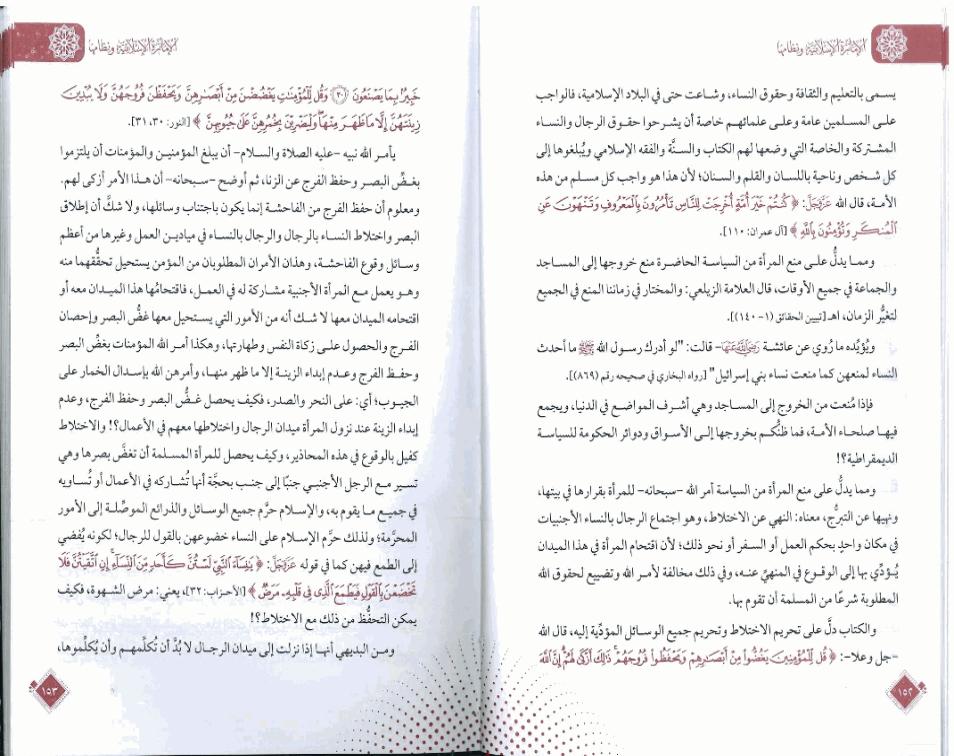 الإمارة الإسلامية ونظامها
يسمى بالتعليم والثقافة وحقوق النساء، وشاعت حتى في البلاد الإسلامية، فالواجب
على المسلمين عامة وعلى علمائهم خاصة أن يشرحوا حقوق الرجال والنساء
المشتركة والخاصة التي وضعها لهم الكتاب والسنَّة والفقه الإسلامي ويُبلغوها إلى
كل شخص وناحية باللسان والقلم والسنان؛ لأن هذا هو واجب كل مسلم من هذه
الأمة، قال الله عَزَّوَجَلَّ: ﴿ كُنتُمْ خَيْرَ أُمَّةٍ أُخْرِجَتْ لِلنَّاسِ تَأْمُرُونَ بِالْمَعْرُوفِ وَتَنْهَوْنَ عَنِ
الْمُنكَرِ وَتُؤْمِنُونَ بِاللَّهِ ﴾ [آل عمران: ١١٠].
ومما يدلُّ على منع المرأة من السياسة الحاضرة منع خروجها إلى المساجد
والجماعة في جميع الأوقات، قال العلامة الزيلعي: والمختار في زماننا المنع في الجميع
لتغيُّر الزمان، اهـ [تبيين الحقائق (١-١٤٠)].
ويُؤيِّده ما رُوي عن عائشة رَضِيَ اللَّهُ عَنْهَا- قالت: "لو أدرك رسول الله ﷺ ما أحدث
النساء لمنعهن كما منعت نساء بني إسرائيل" [رواه البخاري في صحيحه رقم (٨٦٩)].
فإذا مُنعت من الخروج إلى المساجد وهي أشرف المواضع في الدنيا، ويجمع
فيها صلحاء الأمة، فما ظنُّكم بخروجها إلى الأسواق ودوائر الحكومة للسياسة
الديمقراطية؟!
ومما يدلُّ على منع المرأة من السياسة أمر الله -سبحانه- للمرأة بقرارها في بيتها،
ونهيها عن التبرُّج، معناه: النهي عن الاختلاط، وهو اجتماع الرجال بالنساء الأجنبيات
في مكان واحدٍ بحكم العمل أو السفر أو نحو ذلك؛ لأن اقتحام المرأة في هذا الميدان
يُؤدِّي بها إلى الوقوع في المنهيِّ عنه، وفي ذلك مخالفة لأمر الله وتضييع لحقوق الله
المطلوبة شرعًا من المسلمة أن تقوم بها.
والكتاب دلَّ على تحريم الاختلاط وتحريم جميع الوسائل المؤدِّية إليه، قال الله
-جل وعلا-: ﴿ قُل لِّلْمُؤْمِنِينَ يَغُضُّوا مِنْ أَبْصَارِهِمْ وَيَحْفَظُوا فُرُوجَهُمْ ذَلِكَ أَزْكَى لَهُمْ إِنَّ اللَّهَ
١٥٢
الإمارة الإسلامية ونظامها
خَبِيرٌ بِمَا يَصْنَعُونَ ٣٠ وَقُل لِّلْمُؤْمِنَاتِ يَغْضُضْنَ مِنْ أَبْصَارِهِنَّ وَيَحْفَظْنَ فُرُوجَهُنَّ وَلَا يُبْدِينَ
زِينَتَهُنَّ إِلَّا مَا ظَهَرَ مِنْهَا وَلْيَضْرِبْنَ بِخُمُرِهِنَّ عَلَى جُيُوبِهِنَّ ﴾ [النور: ٣٠، ٣١].
يأمر الله نبيه -عليه الصلاة والسلام- أن يبلغ المؤمنين والمؤمنات أن يلتزموا
بغضِّ البصر وحفظ الفرج عن الزنا، ثم أوضح -سبحانه- أن هذا الأمر أزكى لهم.
ومعلوم أن حفظ الفرج من الفاحشة إنما يكون باجتناب وسائلها، ولا شكَّ أن إطلاق
البصر واختلاط النساء بالرجال والرجال بالنساء في ميادين العمل وغيرها من أعظم
وسائل وقوع الفاحشة، وهذان الأمران المطلوبان من المؤمن يستحيل تحقُّقهما منه
وهو يعمل مع المرأة الأجنبية مشاركة له في العمل، فاقتحامُها هذا الميدان معه أو
اقتحامه الميدان معها لا شك أنه من الأمور التي يستحيل معها غضُّ البصر وإحصان
الفرج والحصول على زكاة النفس وطهارتها، وهكذا أمر الله المؤمنات بغضِّ البصر
وحفظ الفرج وعدم إبداء الزينة إلا ما ظهر منها، وأمرهن الله بإسدال الخمار على
الجيوب؛ أي: على النحر والصدر، فكيف يحصل غضُّ البصر وحفظ الفرج، وعدم
إبداء الزينة عند نزول المرأة ميدان الرجال واختلاطها معهم في الأعمال؟! والاختلاط
كفيل بالوقوع في هذه المحاذير، وكيف يحصل للمرأة المسلمة أن تغضَّ بصرها وهي
تسير مع الرجل الأجنبي جنبًا إلى جنب بحجَّة أنها تُشاركه في الأعمال أو تُساويه
في جميع ما يقوم به، والإسلام حرَّم جميع الوسائل والذرائع الموصِّلة إلى الأمور
المحرَّمة؛ ولذلك حرَّم الإسلام على النساء خضوعهن بالقول للرجال؛ لكونه يُفضي
إلى الطمع فيهن كما في قوله عَزَّوَجَلَّ: ﴿ يَا نِسَاءَ النَّبِيِّ لَسْتُنَّ كَأَحَدٍ مِّنَ النِّسَاءِ إِنِ اتَّقَيْتُنَّ فَلَا
تَخْضَعْنَ بِالْقَوْلِ فَيَطْمَعَ الَّذِي فِي قَلْبِهِ مَرَضٌ ﴾ [الأحزاب: ٣٢]، يعني: مرض الشهوة، فكيف
يمكن التحفُّظ من ذلك مع الاختلاط؟!
ومن البديهي أنها إذا نزلت إلى ميدان الرجال لا بُدَّ أن تُكلِّمهم وأن يُكلِّموها،
١٥٣